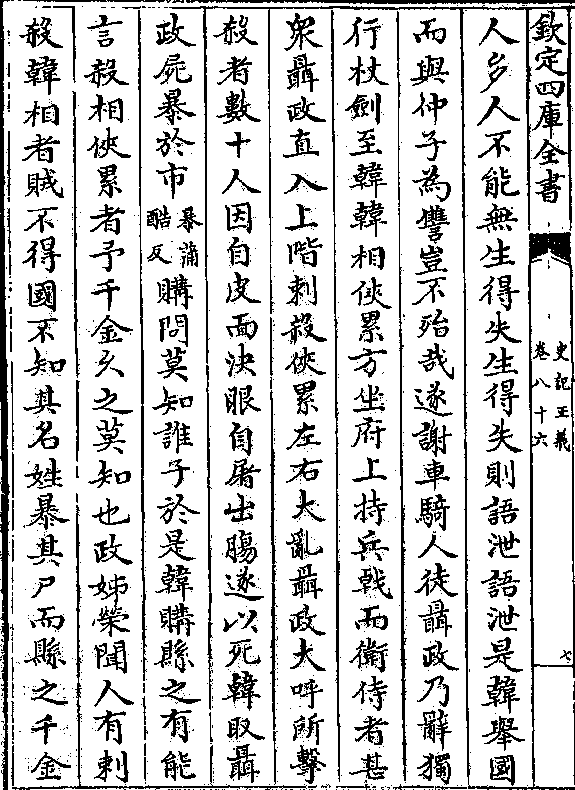 欽定四庫全書
史記正義
卷八十六
七
人多人不能無生得失生得失則語泄語泄是韓舉國
而與仲子為讐豈不殆哉遂謝車騎人徒聶政乃辭獨
行杖劍至韓韓相俠累方坐府上持兵戟而衛侍者甚
衆聶政直入上階刺殺俠累左右大亂聶政大呼所擊
殺者數十人因自皮面決眼自屠出腸遂以死韓取聶
政屍暴於市
暴蒲
酷反
購問莫知誰子於是韓購縣之有能
言殺相俠累者予千金久之莫知也政姊榮聞人有刺
殺韓相者賊不得國不知其名姓暴其尸而縣之千金